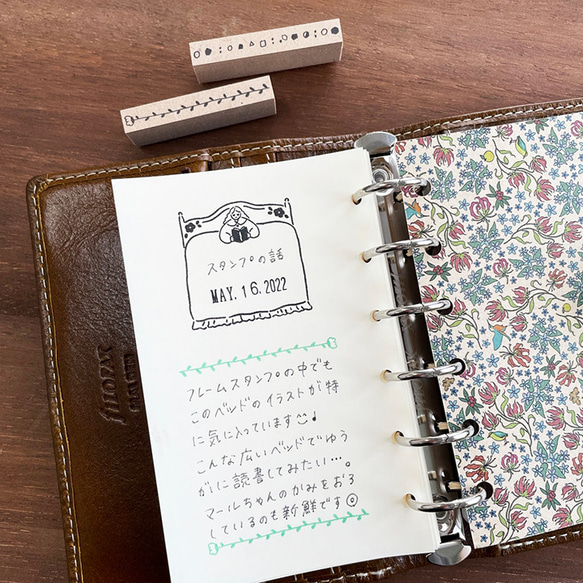 スタンプの話
MAY. 16. 2022
フレームスタンプの中でも
このベッドのイラストが特
に気に入っています♪
こんな広いベッドでゆう
がに読書してみたい…。
マールちゃんのかみをおろ
しているのも新鮮です